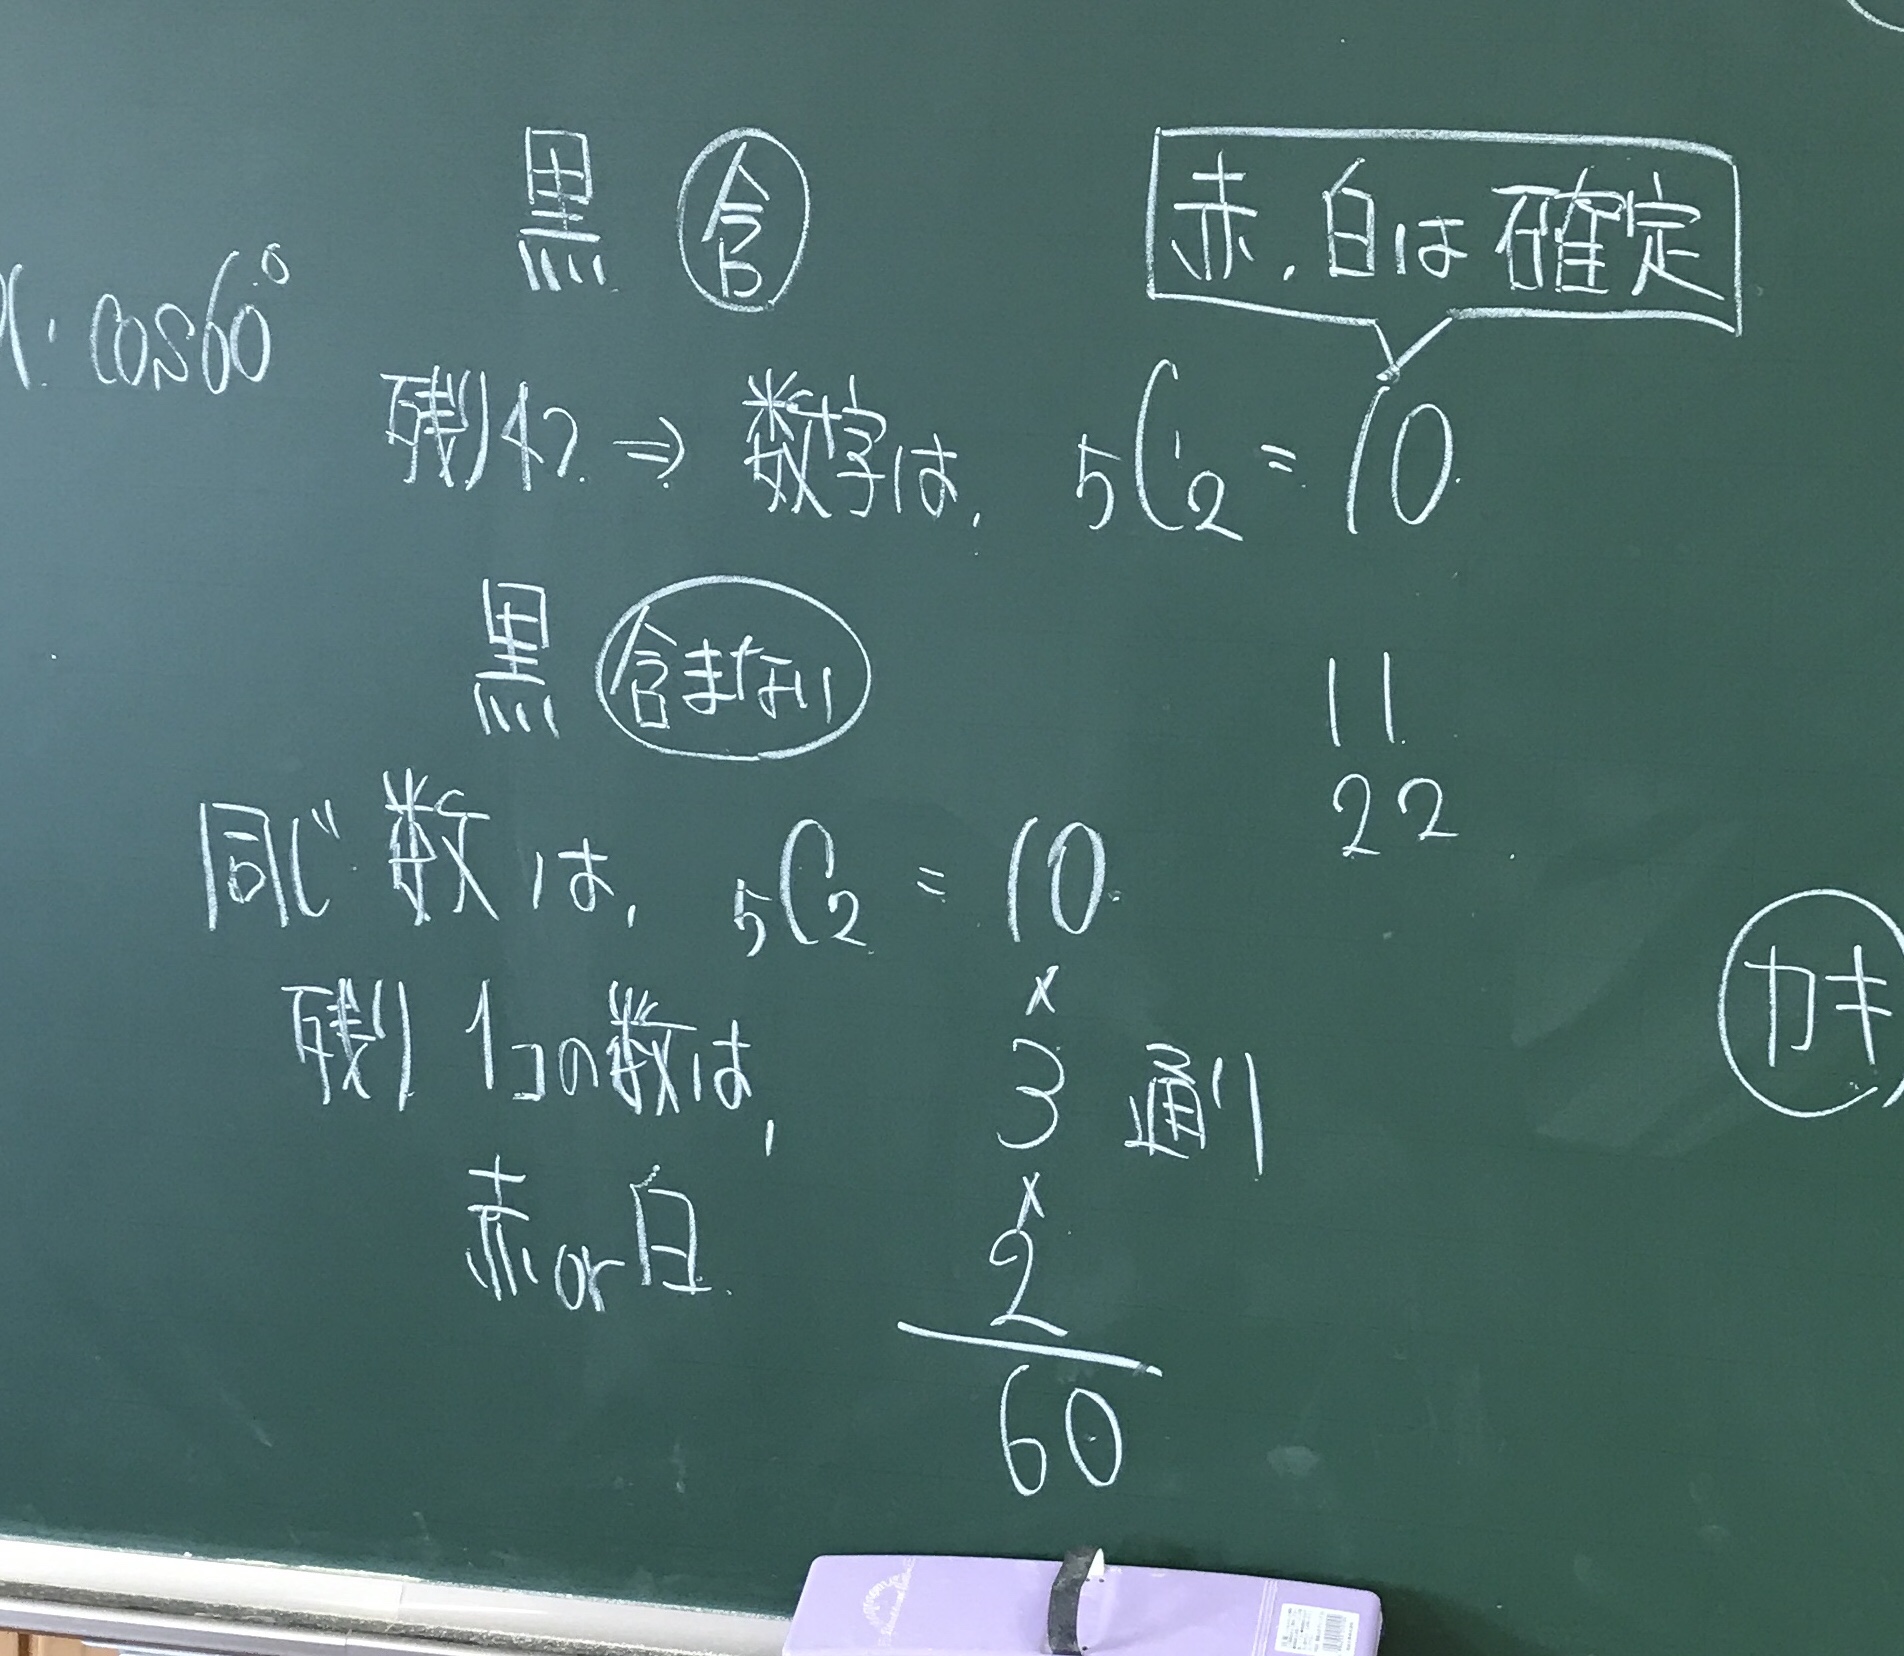 x・cos60°
黒 含
赤、白は確定
残り4コ ⇒ 数字は、 5C2 = 10
黒 含まない
11
22
同じ数は、 5C2 = 10
×
残り 1コの数は、 3通り
×
赤or白 2
60
カキ